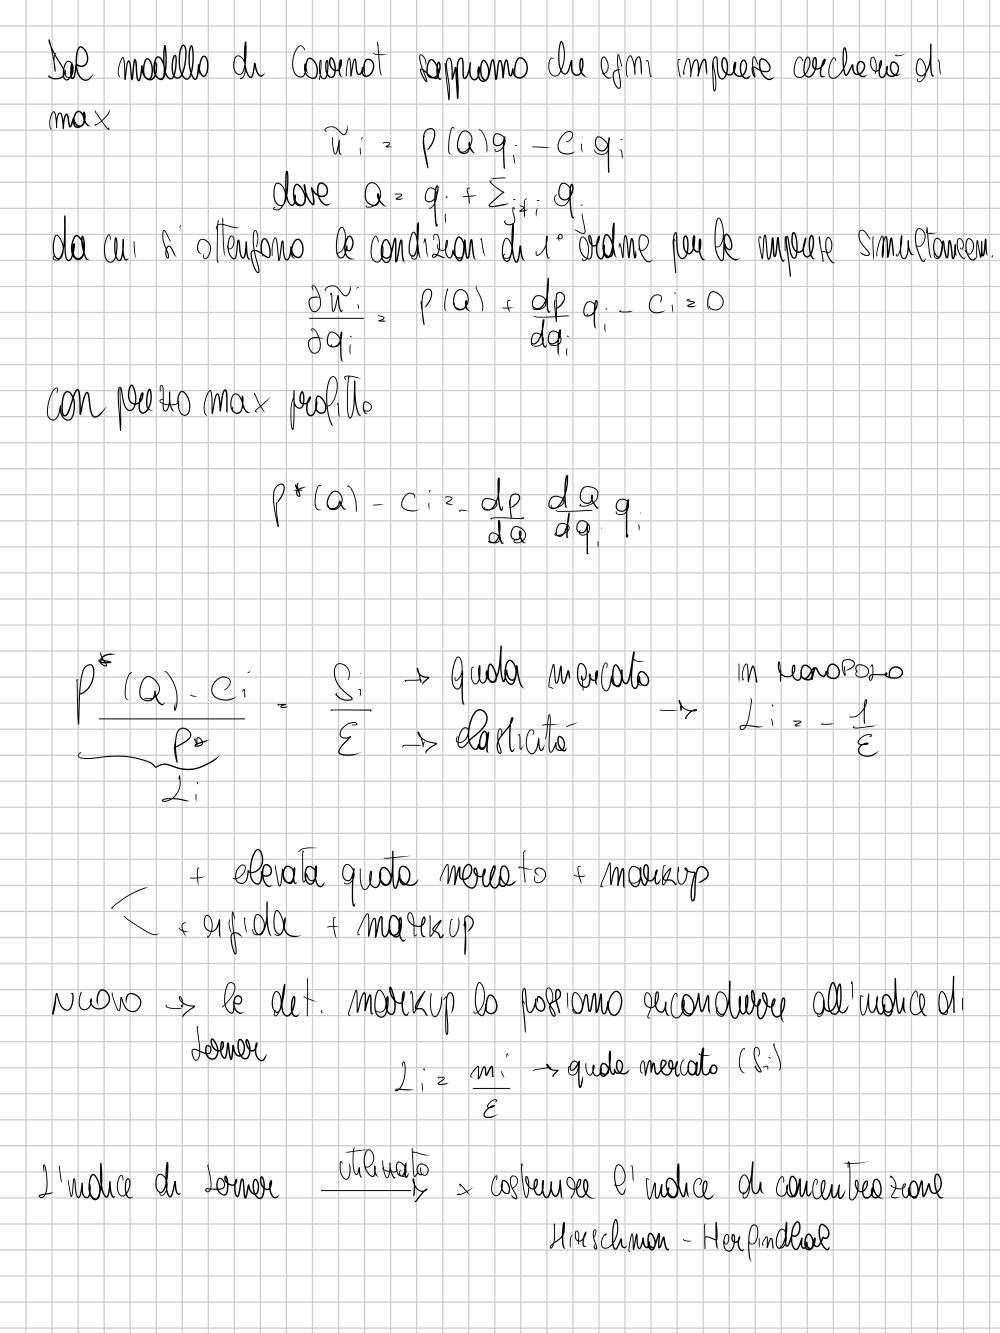 Dal modello di Cournot sappiamo che ogni impresa cercherà di
max
π̃i = P(Q)qi - Ci qi
dove Q = qi + Σj≠i qj
da cui si ottengono le condizioni di 1° ordine per le imprese simultaneam.
∂π̃i/∂qi = P(Q) + dp/dqi qi - Ci = 0
con prezzo max profitto
P*(Q) - Ci = - dp/dQ dQ/dqi qi
P*(Q) - Ci / P* = Si/ε → quota mercato → in MONOPOLIO
→ elasticità Li = - 1/ε
Li
+ elevata quota mercato + markup
+ rigida + markup
NUOVO → la det. markup lo possiamo ricondurre all'indice di
Lerner
Li = mi/ε → quota mercato (Si)
L'indice di Lerner utilizzato → x costruire l'indice di concentrazione
Hirschman - Herfindhal